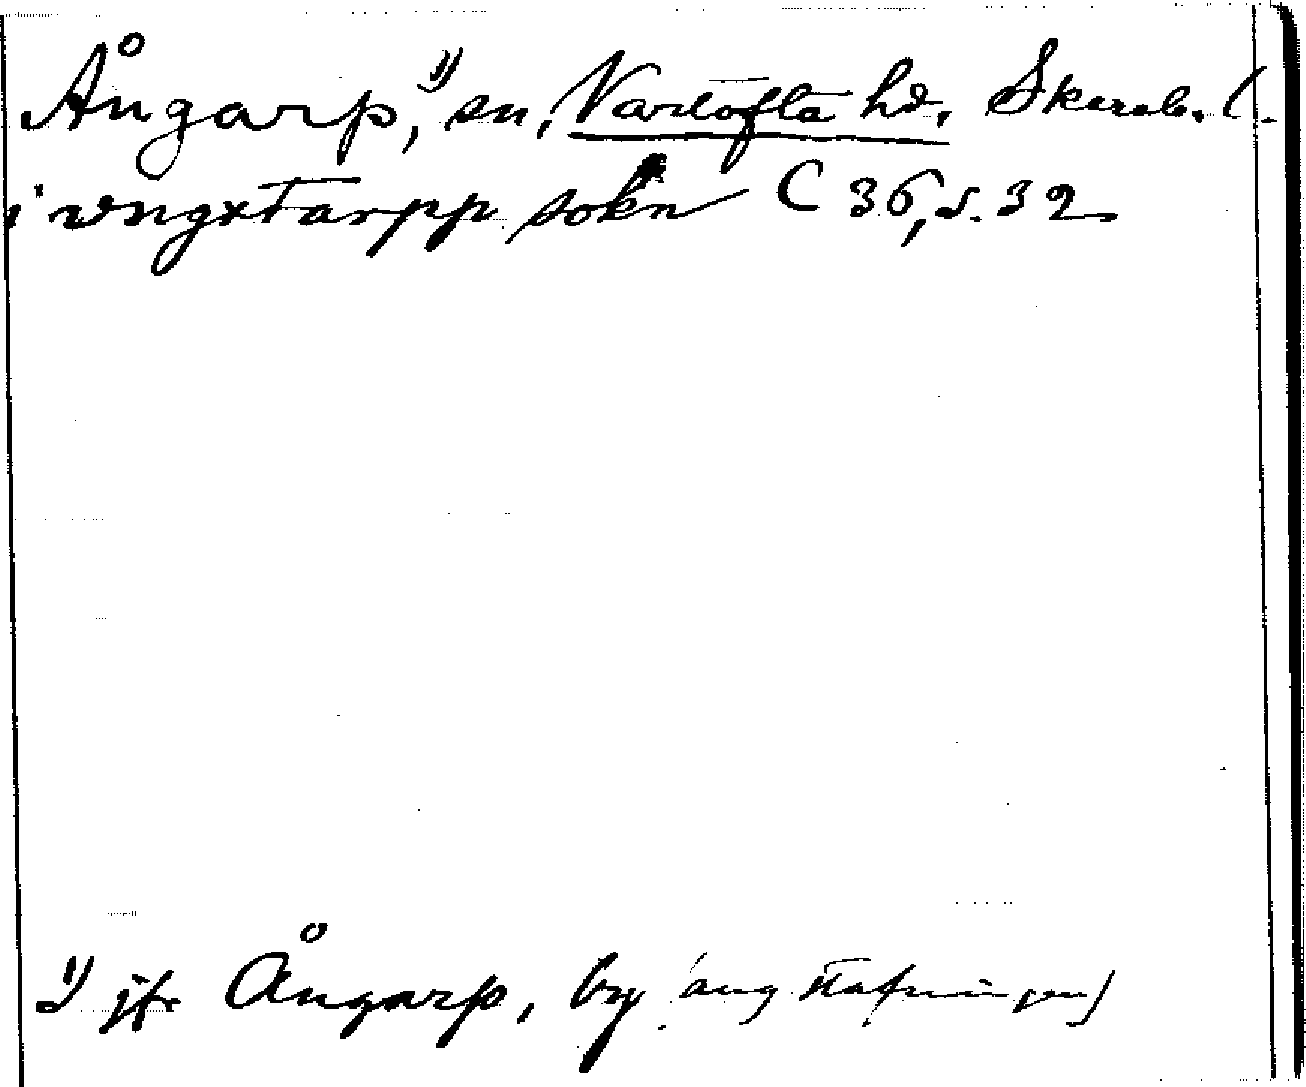 Ångarp,¹⁾ sn, Vartofta hd. Skarab. l.
i vngxtarpp sokn C 36, s. 32
¹⁾ jfr Ångarp, by (ang stafningen)